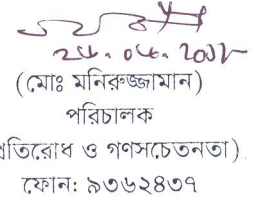 (মোঃ মনিরুজ্জামান)
পরিচালক
প্রতিরোধ ও গণসচেতনতা)
ফোন: ৯৩৬২৪৩৭